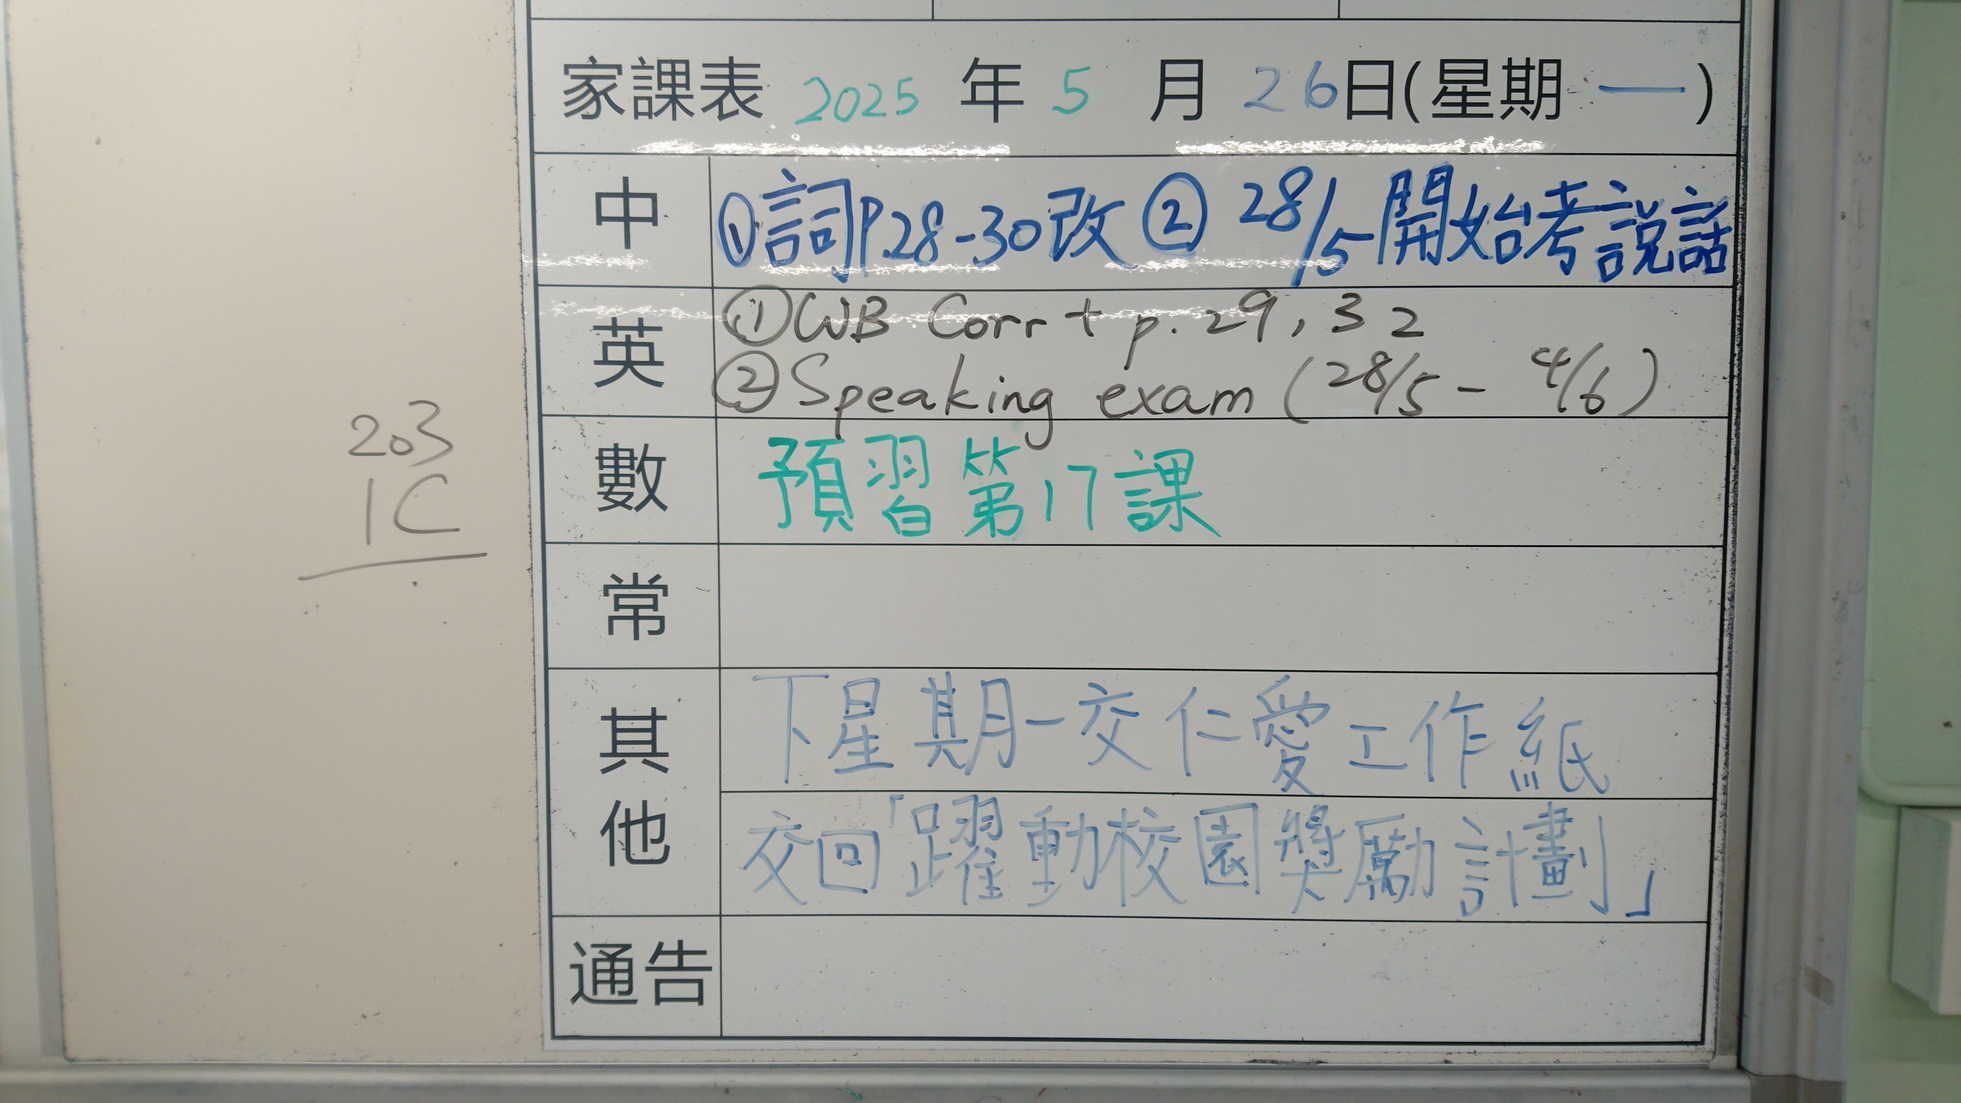 家課表 2025 年 5 月 26日(星期 一)
中 ①詞P.28-30改 ② 28/5開始考說話
英 ①WB Corr + p. 29, 32
②Speaking exam (28/5 - 4/6)
203
1C
數 預習第17課
常
其他 下星期一交仁愛工作紙
交回「躍動校園獎勵計劃」
通告